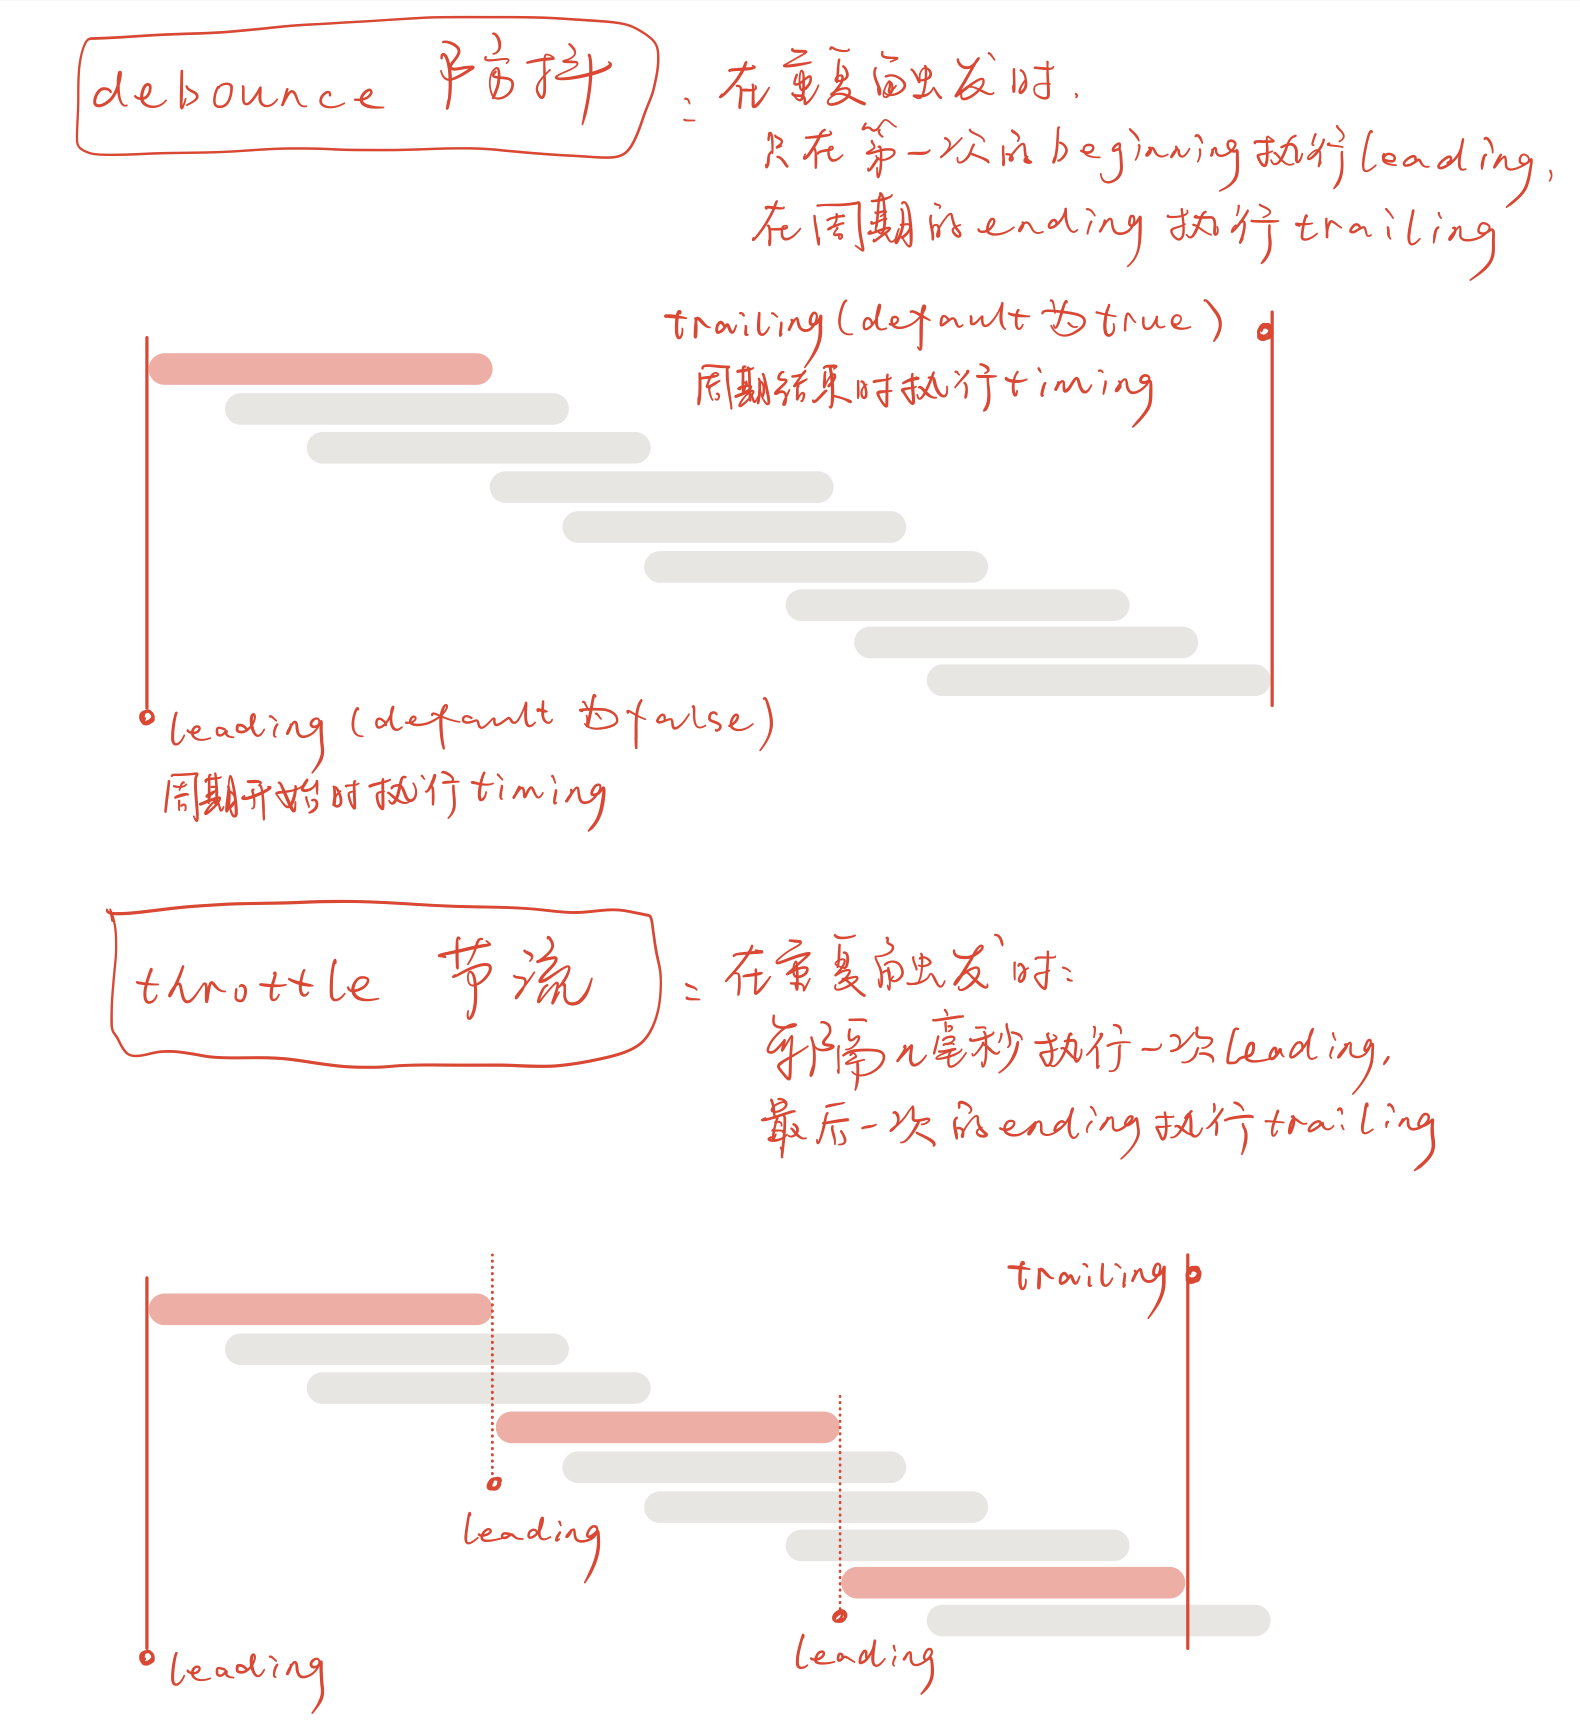 debounce 防抖 : 在重复触发时.
只在第一次的beginning执行leading,
在周期的ending执行trailing
trailing(default为true)
周期结束时执行timing
leading (default为false)
周期开始时执行timing
throttle 节流 : 在重复触发时:
每隔n毫秒执行一次leading,
最后一次的ending执行trailing
trailing
leading
leading
leading